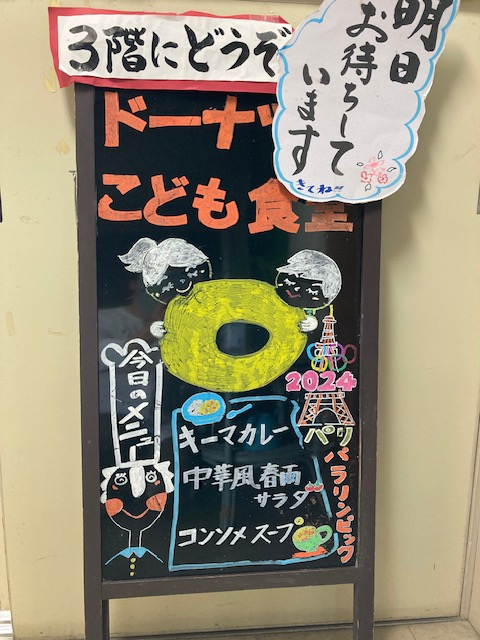 3階にどうぞ
明日
お待ちして
います
きてね
ドーナツ
こども食堂
今日のメニュー
2024
パリ
パラリンピック
キーマカレー
中華風春雨
サラダ
コンソメスープ